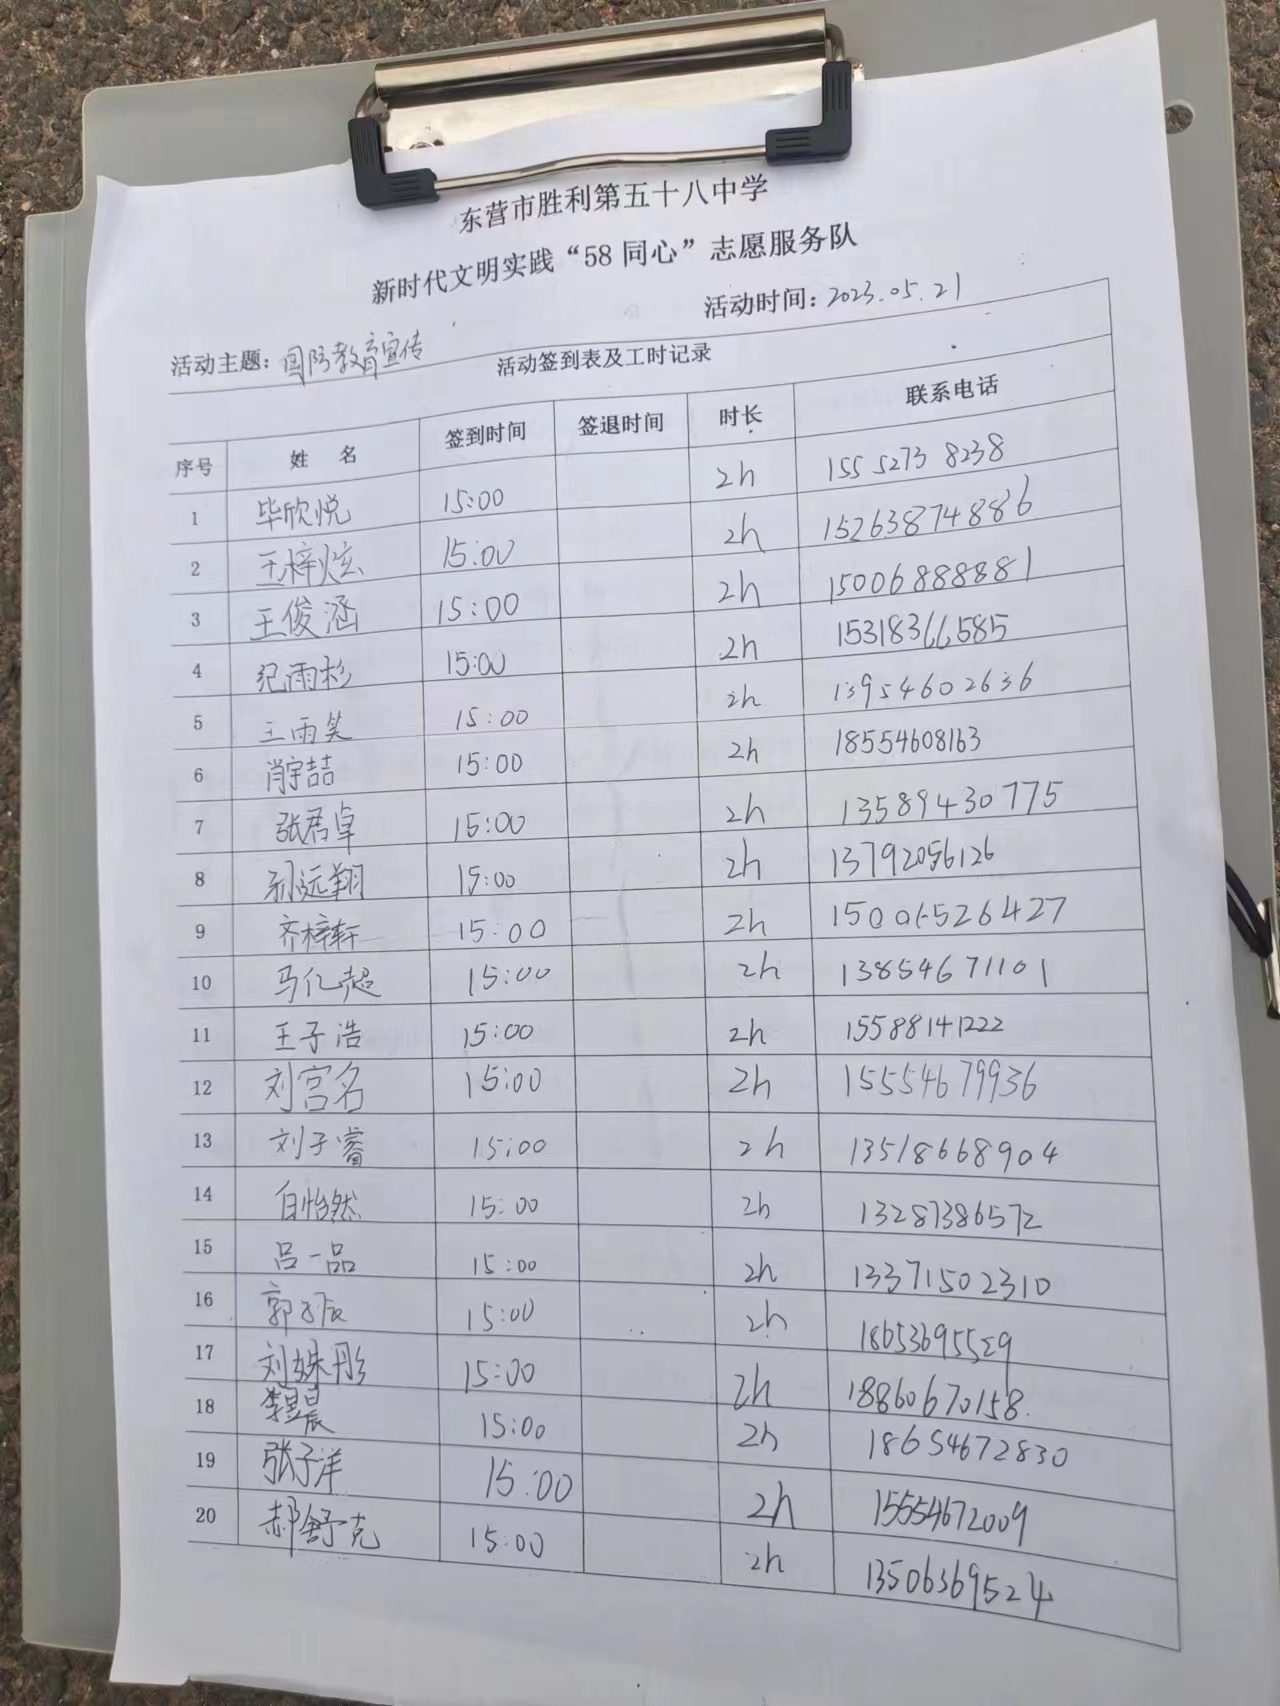 东营市胜利第五十八中学
新时代文明实践“58同心”志愿服务队
活动时间：2023.05.21
活动主题：国防教育宣传
活动签到表及工时记录
序号 姓 名 签到时间 签退时间 时长 联系电话
1 毕欣悦 15:00 2h 155 5273 8238
2 王梓炫 15:00 2h 15263874886
3 王俊涵 15:00 2h 15006888881
4 纪雨杉 15:00 2h 15318366585
5 王雨笑 15:00 2h 13954602636
6 肖宇喆 15:00 2h 18554608163
7 张君卓 15:00 2h 13589430775
8 孙远翔 15:00 2h 13792056126
9 齐梓轩 15:00 2h 15006526427
10 马亿超 15:00 2h 13854671101
11 王子浩 15:00 2h 15588141222
12 刘宫名 15:00 2h 15554679936
13 刘子睿 15:00 2h 13518668904
14 白怡然 15:00 2h 13287386572
15 吕一品 15:00 2h 13371502310
16 郭 辰 15:00 2h 18653695529
17 刘姝彤 15:00 2h 18860670158
18 李昱晨 15:00 2h 18654672830
19 张子洋 15:00 2h 15554672009
20 郝舒克 15:00 2h 13506369524